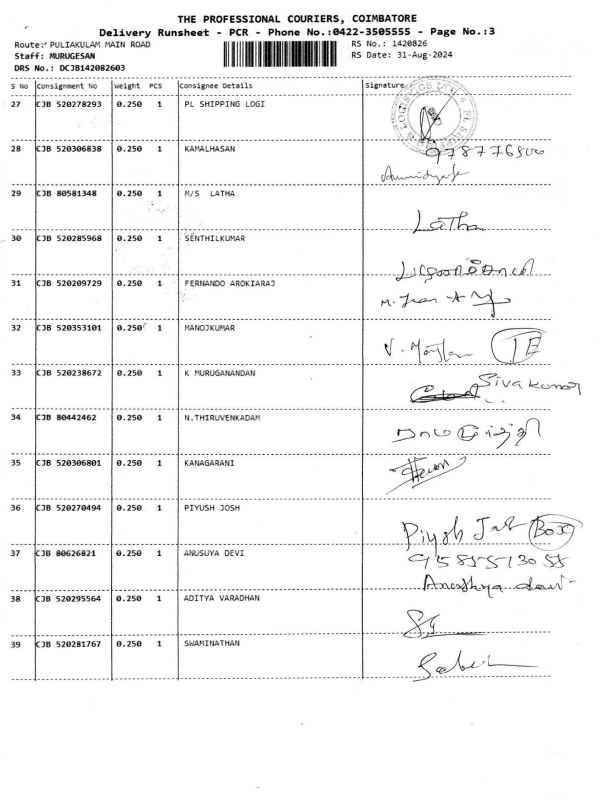 THE PROFESSIONAL COURIERS, COIMBATORE
Delivery Runsheet - PCR - Phone No.:0422-3505555 - Page No.:3
Route: PULIAKULAM MAIN ROAD RS No.: 1420826
Staff: MURUGESAN RS Date: 31-Aug-2024
DRS No.: DCJB142082603
S No Consignment No Weight PCS Consignee Details Signature
27 CJB 520278293 0.250 1 PL SHIPPING LOGI
28 CJB 520306838 0.250 1 KAMALHASAN
29 CJB 80581348 0.250 1 M/S LATHA Latha
30 CJB 520285968 0.250 1 SENTHILKUMAR
31 CJB 520209729 0.250 1 FERNANDO AROKIARAJ
32 CJB 520353101 0.250 1 MANOJKUMAR
33 CJB 520238672 0.250 1 K MURUGANANDAN Sivakumar
34 CJB 80442462 0.250 1 N.THIRUVENKADAM
35 CJB 520306801 0.250 1 KANAGARANI
36 CJB 520270494 0.250 1 PIYUSH JOSH Box
37 CJB 80626821 0.250 1 ANUSUYA DEVI
38 CJB 520295564 0.250 1 ADITYA VARADHAN
39 CJB 520281767 0.250 1 SWAMINATHAN